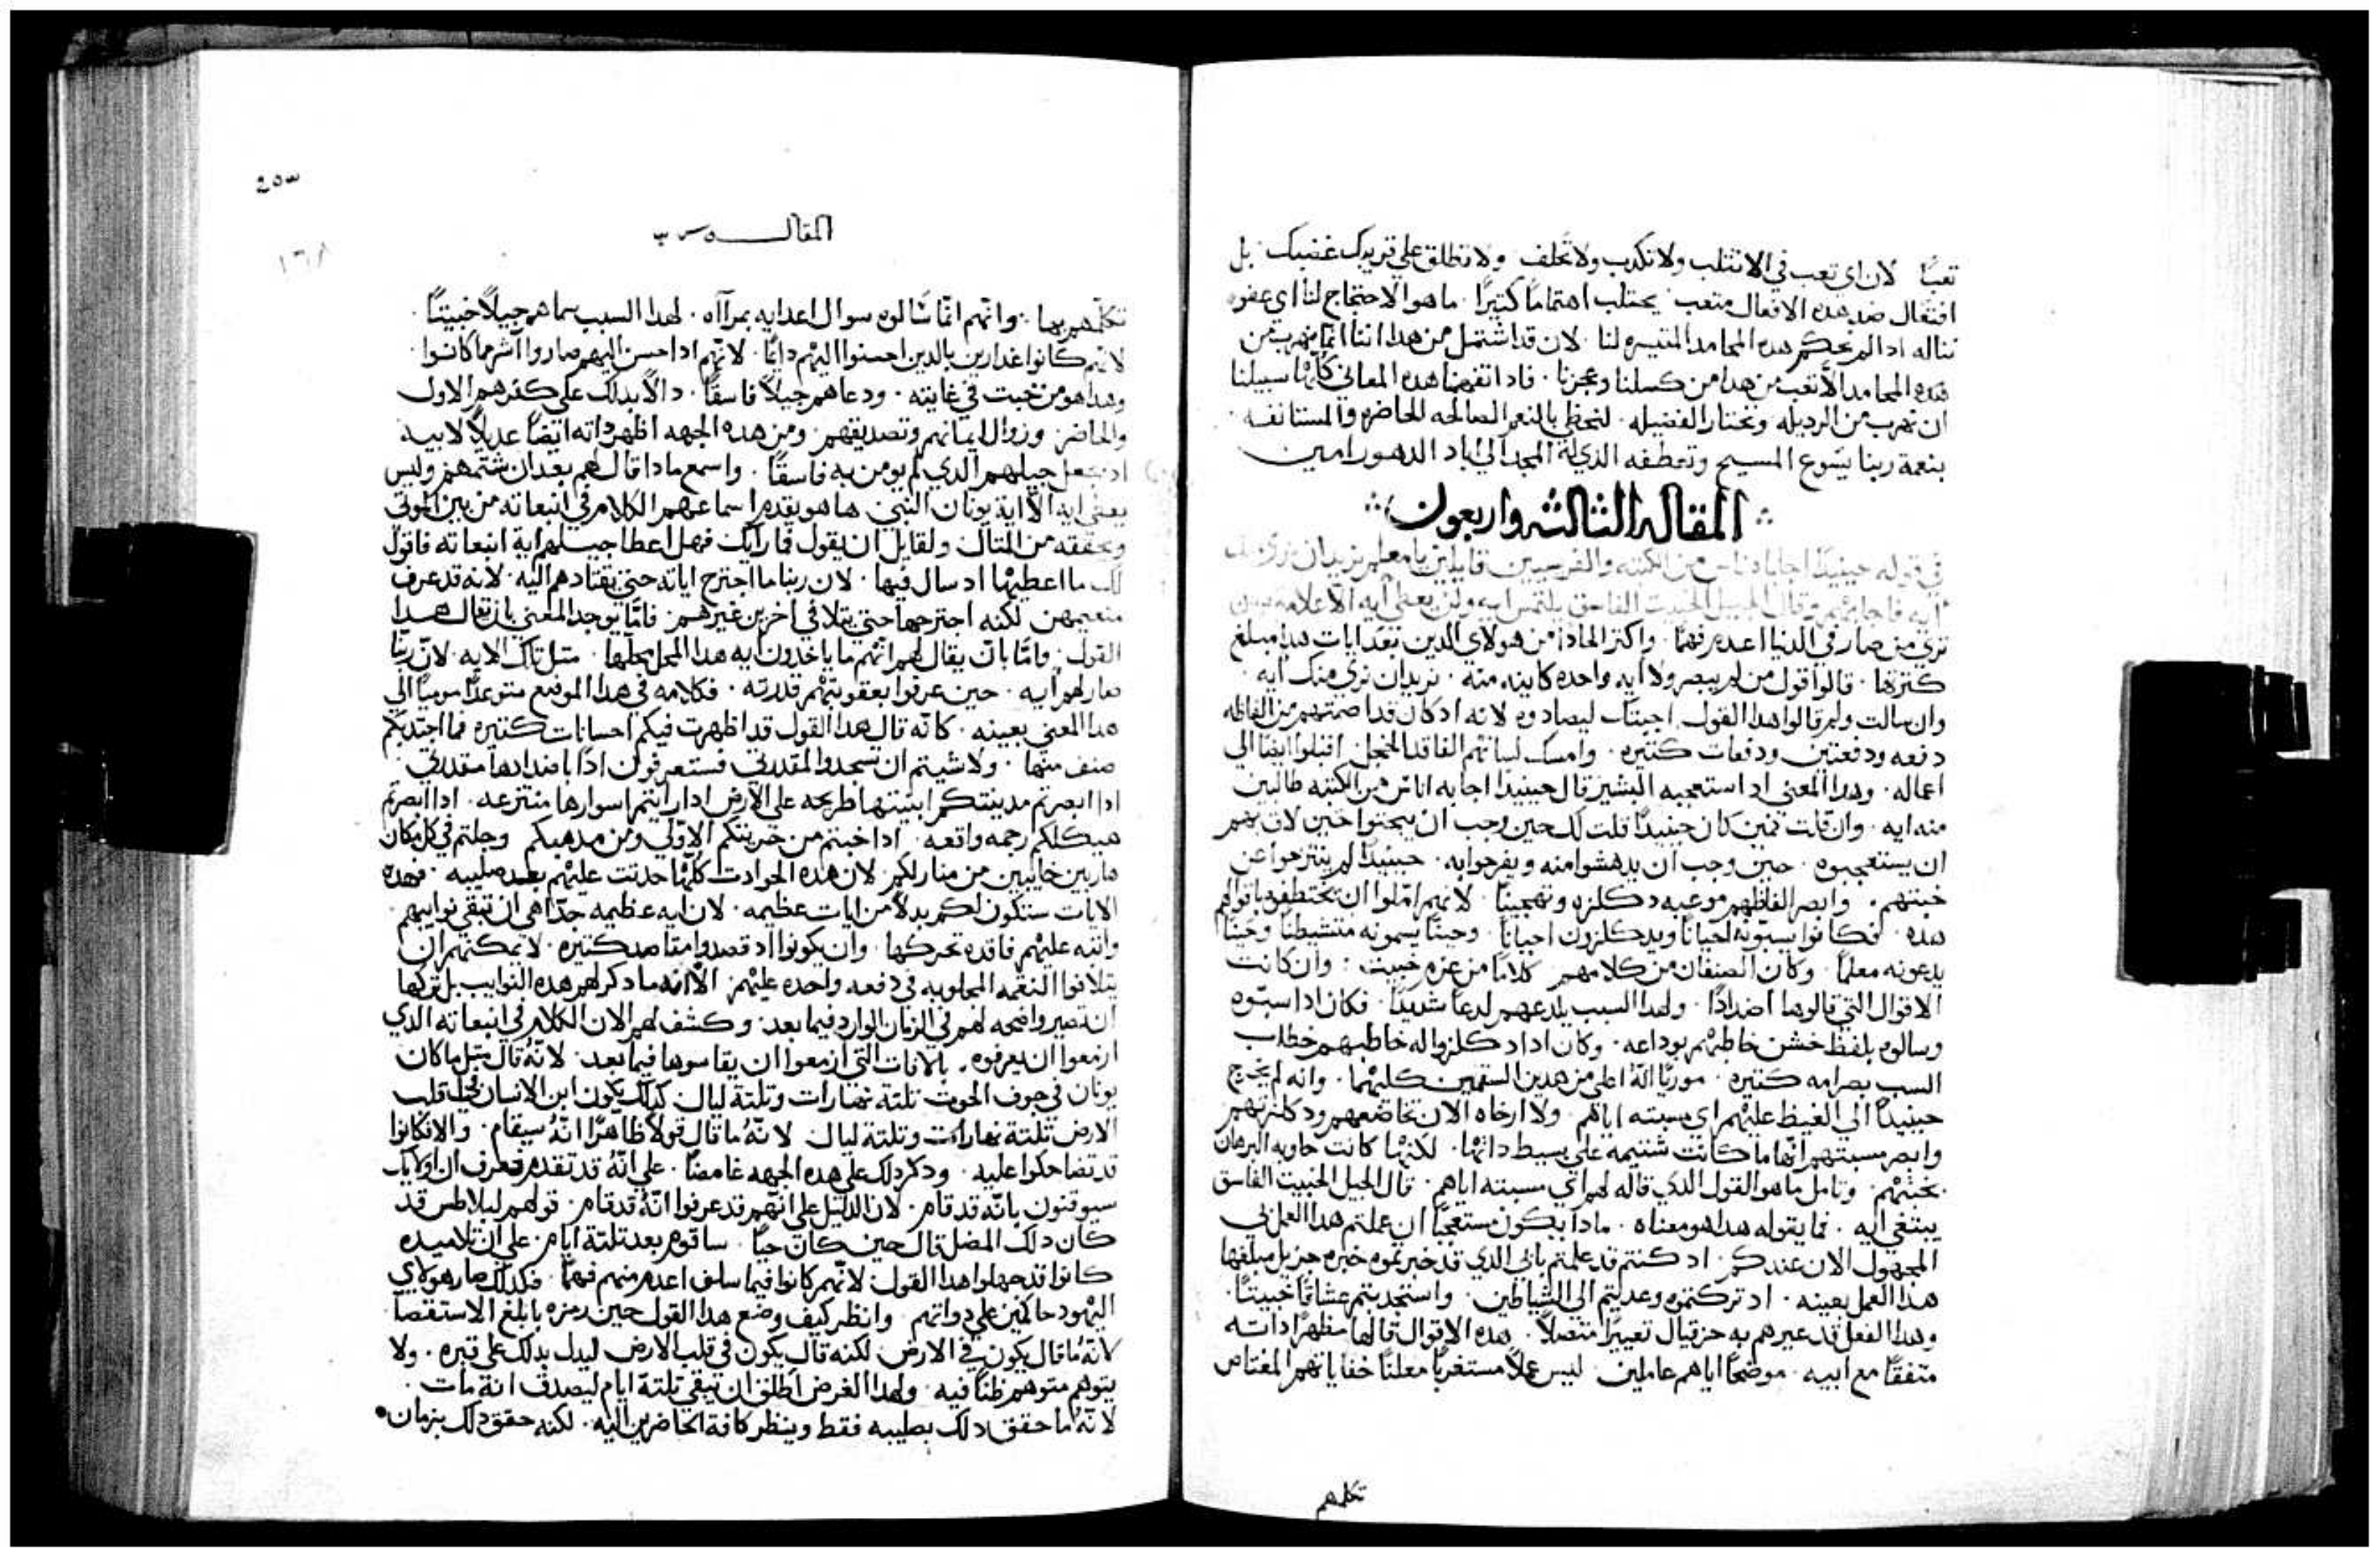 تعبًا لان اي تعب في الا نثلب ولا نكدب ولا نحلف ولا نطلق علي قريبك غضبك بل
افتعال ضد هده الافعال متعب يجتلب اهتمامًا كتيرًا ما هو الاحتجاج لنا اي عفو
نناله ادا لم نحكم هده المحامد المتيسره لنا لان قد اشتمل من هدا اننا انما نهرب من
هده المحامد لا لتعب من هدا من كسلنا وعجزنا فاد اتفهمنا هده المعاني كلها سبيلنا
ان نهرب من الرديله ونختار الفضيله لنحظي بالنعم الصالحه الحاضره والمستانفه
بنعمة ربنا يسوع المسيح وتعطفه الدي له المجد الي اباد الدهور امين
المقاله الثالثه واربعون
في قوله حينيدًا اجاباه ناس من الكتبه والفريسيين قايلين يا معلم نريد ان نري منك
ايه فاجابهم وقال الجيل الخبيت الفاسق يلتمس ايه ولن يعطي ايه الا علامة يونان
تري من صار في الدنيا اعدم فهمًا واكتر الحادًا من هولاي الدين بعد ايات هدا مبلغ
كترتها قالوا قول من لم يبصر ولا ايه واحده كاينه منه نريد ان نري منك ايه
وان سالت ولم قالوا هدا القول اجبتك ليصادوه لانه اد كان قد اصمتهم من الفاظه
دفعه ودفعتين ودفعات كتيره وامسك لسانهم الفاقد الخجل اقبلوا ايضًا الي
اعماله وهدا المعني اد استعجبه البشير قال حينيدًا اجابه اناس من الكتبه طالبين
منه ايه وان قلت فمتي كان حينيدًا قلت لك حين وجب ان يبحتوا حين لاق بهم
ان يستعجبوه حين وجب ان يدهشوا منه ويفرحوا به حينيدًا لم ينتزحوا عن
خبتهم وابصر الفاظهم موعبه دكلزه وتهجينًا لانهم املوا ان يختطفوه باقوالهم
هده فكانوا يسبونه احيانًا ويدكلزون احيانًا وحينًا يسمونه متشيطنًا وحينًا
يدعونه معلمًا وكان الصنفان من كلامهم كلامًا من عزم خبيت وان كانت
الاقوال التي قالوها اضدادًا ولهدا السبب يلدعهم لدعًا شديدًا فكان ادا سبوه
وسالوه بلفظ خشن خاطبهم بوداعه وكان ادا دكلزوا له خاطبهم خطاب
السب بصرامه كتيره موريًا انه اعلي من هدين السقمين كليهما وانه لم يخرج
حينيدًا الي الغيظ عليهم اي مسبته اياهم ولا ارخاه الان تخاضعهم ودكلزتهم
وابصر مسبتهم انها ما كانت شتيمه علي بسيط داتها لكنها كانت حاويه البرهان
بخبتهم وتامل ما هو القول الدي قاله لهم اي مسبته اياهم قال الجيل الخبيت الفاسق
يبتغي ايه فما يقوله هدا هو معناه مادا يكون مستعجبًا ان عملتم هدا العمل بي
المجهول الان عندكم اد كنتم قد عملتم بابي الدي قد خبرتموه خبره جزيل مبلغها
هدا العمل بعينه اد تركتموه وعدلتم الي الشياطين واستجدبتم عشاقًا خبيتًا
وهدا الفعل قد عيرهم به حزقيال تعييرًا متصلًا هده الاقوال قالها مظهرًا داته
متفقًا مع ابيه موضحًا اياهم عاملين ليس عملًا مستغربًا معلنًا خفاياتهم المغتاص
تكلمهم
٢٥٣
المقاله
١٦٨
تكلمهم بها وانهم انما سالوه سوال اعدايه بمراآه لهدا السبب سماهم جيلًا خبيتًا
لانهم كانوا غدارين بالدين احسنوا اليهم دايمًا لانهم ادا حسن اليهم صاروا اشر مما كانوا
وهدا هو من خبت في غايته ودعاهم جيلًا فاسقًا دالًا بدلك علي كفرهم الاول
والحاضر وزوال ايمانهم وتصديقهم ومن هده الجهه اظهر داته ايضًا عديلًا لابيه
اد يجعل جيلهم الدي لم يومن به فاسقًا واسمع مادا قال لهم بعد ان شتمهم وليس
يعطي ايه الا اية يونان النبي ها هو يقدم اسماعهم الكلام في انبعاته من بين الموتي
ويحققه من المتال ولقايل ان يقول فما رايك فهل اعطا جيلهم اية انبعاته فاقول
لك ما اعطيها اد سال فيها لان ربنا ما اجترح اياته حتي يقتادهم اليه لانه قد عرف
لكنه اجترحها حتي يتلافي اخرين غيرهم فاما يوجد المعني بان يقال هدا
القول واما بان يقال لهم انهم ما ياخدون ايه هدا المحل محلها متل تلك الايه لان ربنا
صار لهم ايه حين عرفوا بعقوبتهم قدرته فكلامه في هدا الموضع متوعدًا موميًا الي
هدا المعني بعينه كانه قال هدا القول قد اظهرت فيكم احسانات كتيره فما اجتدبكم
صنف منها ولا شيتم ان تسجدوا لمقدرتي فستعرفون ادًا باضدادها مقدرتي
ادا ابصرتم مدينتكم ابنيتها طريحه علي الارض ادا رايتم اسوارها منتزعه ادا ابصرتم
هيكلكم رجمه واقعه ادا خبتم من حريتكم الاولي ومن مدهبكم وجلتم في كل مكان
هاربين خايبين من منازلكم لان هده الحوادت كلها حدتت عليهم بعد صليبه فهده
الايات ستكون لكم بدلًا من ايات عظيمه لان ايه عظيمه جدًا هي ان تبقي نوايبهم
واتبه عليهم فاقده تحركها وان يكونوا اد قصدوا مقاصد كتيره لا يمكنهم ان
يتلافوا النقمه المجلوبه في دفعه واحده عليهم الا انه ما دكر لهم هده النوايب بل تركها
ان تصير واضحه لهم في الزمان الوارد فيما بعد وكشف لهم الان الكلام في انبعاته الدي
ازمعوا ان يعرفوه بالافات التي ازمعوا ان يقاسوها فيما بعد لانه قال متل ما كان
يونان في جوف الحوت تلتة نهارات وتلتة ليال كدلك يكون ابن الانسان في قلب
الارض تلتة نهارات وتلتة ليال لانه ما قال قولًا ظاهرًا انه سيقام والا لكانوا
قد تضاحكوا عليه ودكر دلك علي هده الجهه غامضًا علي انه قد تقدم فعرف ان اولايك
سيوقنون بانه قد قام لان الدليل علي انهم قد عرفوا انه قد قام قولهم لبيلاطس قد
كان دلك المضل قال حين كان حيًا ساقوم بعد تلتة ايام علي ان تلاميده
كانوا قد جهلوا هدا القول لانهم كانوا فيما سلف اعدم منهم فهمًا فكدلك صار هولاي
اليهود حاكمين علي دواتهم وانظر كيف وضع هدا القول حين رمزه بابلغ الاستقصا
لانه ما قال يكون في الارض لكنه قال يكون في قلب الارض ليدل بدلك علي قبره ولا
يتوهم متوهم ظنًا فيه ولهدا الغرض اطلق ان تبقي تلتة ايام ليصدق انه مات
لانه ما حقق دلك بصليبه فقط وينظر كافة الحاضرين اليه لكنه حقق دلك بزمان